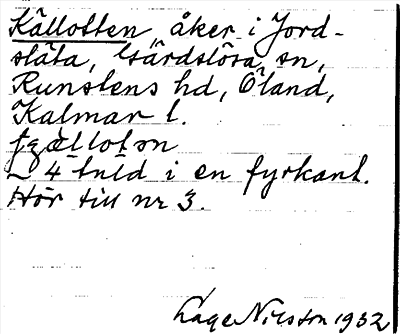 Källotten, åker i Jord-
släta, Gärdslösa sn,
Runstens hd, Öland,
Kalmar l.
4 tnld i en fyrkant.
Hör till nr 3.
Lage Nilsson 1932